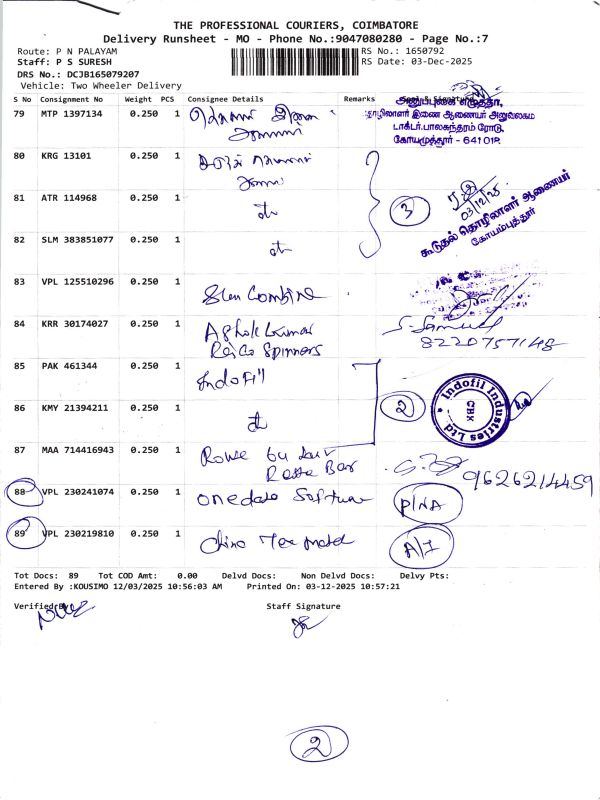 THE PROFESSIONAL COURIERS, COIMBATORE
Delivery Runsheet - MO - Phone No.:9047080280 - Page No.:7
Route: P N PALAYAM
RS No.: 1650792
Staff: P S SURESH
RS Date: 03-Dec-2025
DRS No.: DCJB165079207
Vehicle: Two Wheeler Delivery
S No Consignment No Weight PCS Consignee Details Remarks
79 MTP 1397134 0.250 1
தொழிலாளர் இணை ஆணையர் அலுவலகம்
டாக்டர்.பாலசுந்தரம் ரோடு,
கோயமுத்தூர் - 641018.
80 KRG 13101 0.250 1
81 ATR 114968 0.250 1
3
03/12/25
கூடுதல் தொழிலாளர் ஆணையர்
கோயம்புத்தூர்
82 SLM 383851077 0.250 1
83 VPL 125510296 0.250 1 Glen Combine
84 KRR 30174027 0.250 1 Ashok Kumar
Rajco Spinners
S. Samuel
8220757148
85 PAK 461344 0.250 1 Indofil
86 KMY 21394211 0.250 1
2
Indofil Industries Ltd
CBK
87 MAA 714416943 0.250 1
9626214459
88 VPL 230241074 0.250 1 Onedata Software P/NA
89 VPL 230219810 0.250 1 A/I
Tot Docs: 89 Tot COD Amt: 0.00 Delvd Docs: Non Delvd Docs: Delvy Pts:
Entered By :KOUSIMO 12/03/2025 10:56:03 AM Printed On: 03-12-2025 10:57:21
Verified By
Staff Signature
2